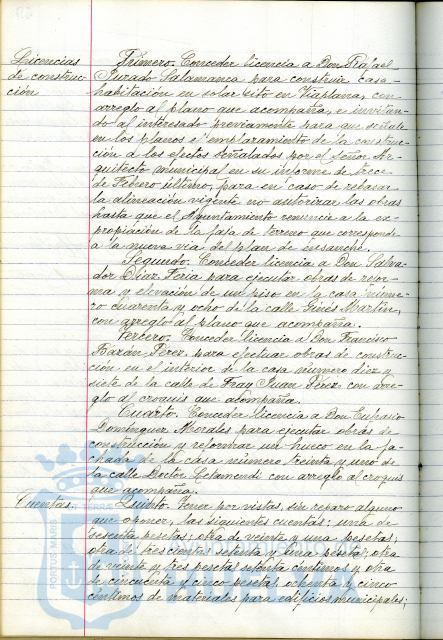 Licencias
de construc-
ción
Primero. Conceder licencia a Don Rafael
Jurado Salamanca para construir casa-
habitación en solar sito en Viaplana, con
arreglo al plano que acompaña, e invitan-
do al interesado previamente para que señale
en los planos el emplazamiento de la construc-
ción a los efectos señalados por el Señor Ar-
quitecto municipal en su informe de trece
de Febrero último, para en caso de rebasar
la alineación vigente no autorizar las obras
hasta que el Ayuntamiento renuncie a la ex-
propiación de la faja de terreno que corresponde
a la nueva vía del plan de ensanche.
Segundo. Conceder licencia a Don Salva-
dor Díaz Feria para ejecutar obras de refor-
ma y elevación de un piso en la casa núme-
ro cuarenta y ocho de la calle Ginés Martín,
con arreglo al plano que acompaña.
Tercero. Conceder licencia a Don Francisco
Bazán Pérez para efectuar obras de construc-
ción en el interior de la casa número diez y
siete de la calle de Fray Juan Pérez con arre-
glo al croquis que acompaña.
Cuarto. Conceder licencia a Don Eufrasio
Domínguez Morales para ejecutar obras de
construcción y reformar un hueco en la fa-
chada de la casa número treinta y uno de
la calle Doctor Letamendi con arreglo al croquis
que acompaña.
Cuentas.
Quinto. Tener por vistas, sin reparo alguno
que oponer, las siguientes cuentas: una de
sesenta pesetas; otra de veinte y una pesetas;
otra de trescientas setenta y una peseta; otra
de veinte y tres pesetas setenta céntimos y otra
de cincuenta y cinco pesetas ochenta y cinco
céntimos de materiales para edificios municipales;